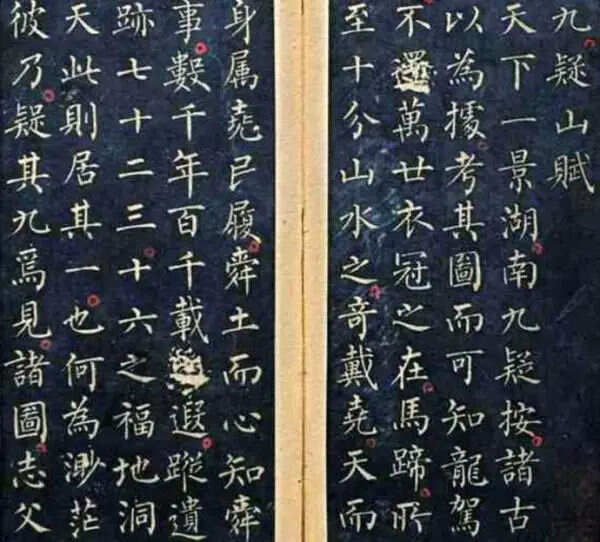 九疑山賦
天下一景湖南九疑按諸古
以為據考其圖而可知龍駕
不還萬廿衣冠之在馬蹄所
至十分山水之竒戴堯天而
身属堯民履舜土而心知舜
事數千年百千載遐蹤遺
跡七十二三十六之福地洞
天此則居其一也何為渺茫
彼乃疑其九焉見諸圖志父